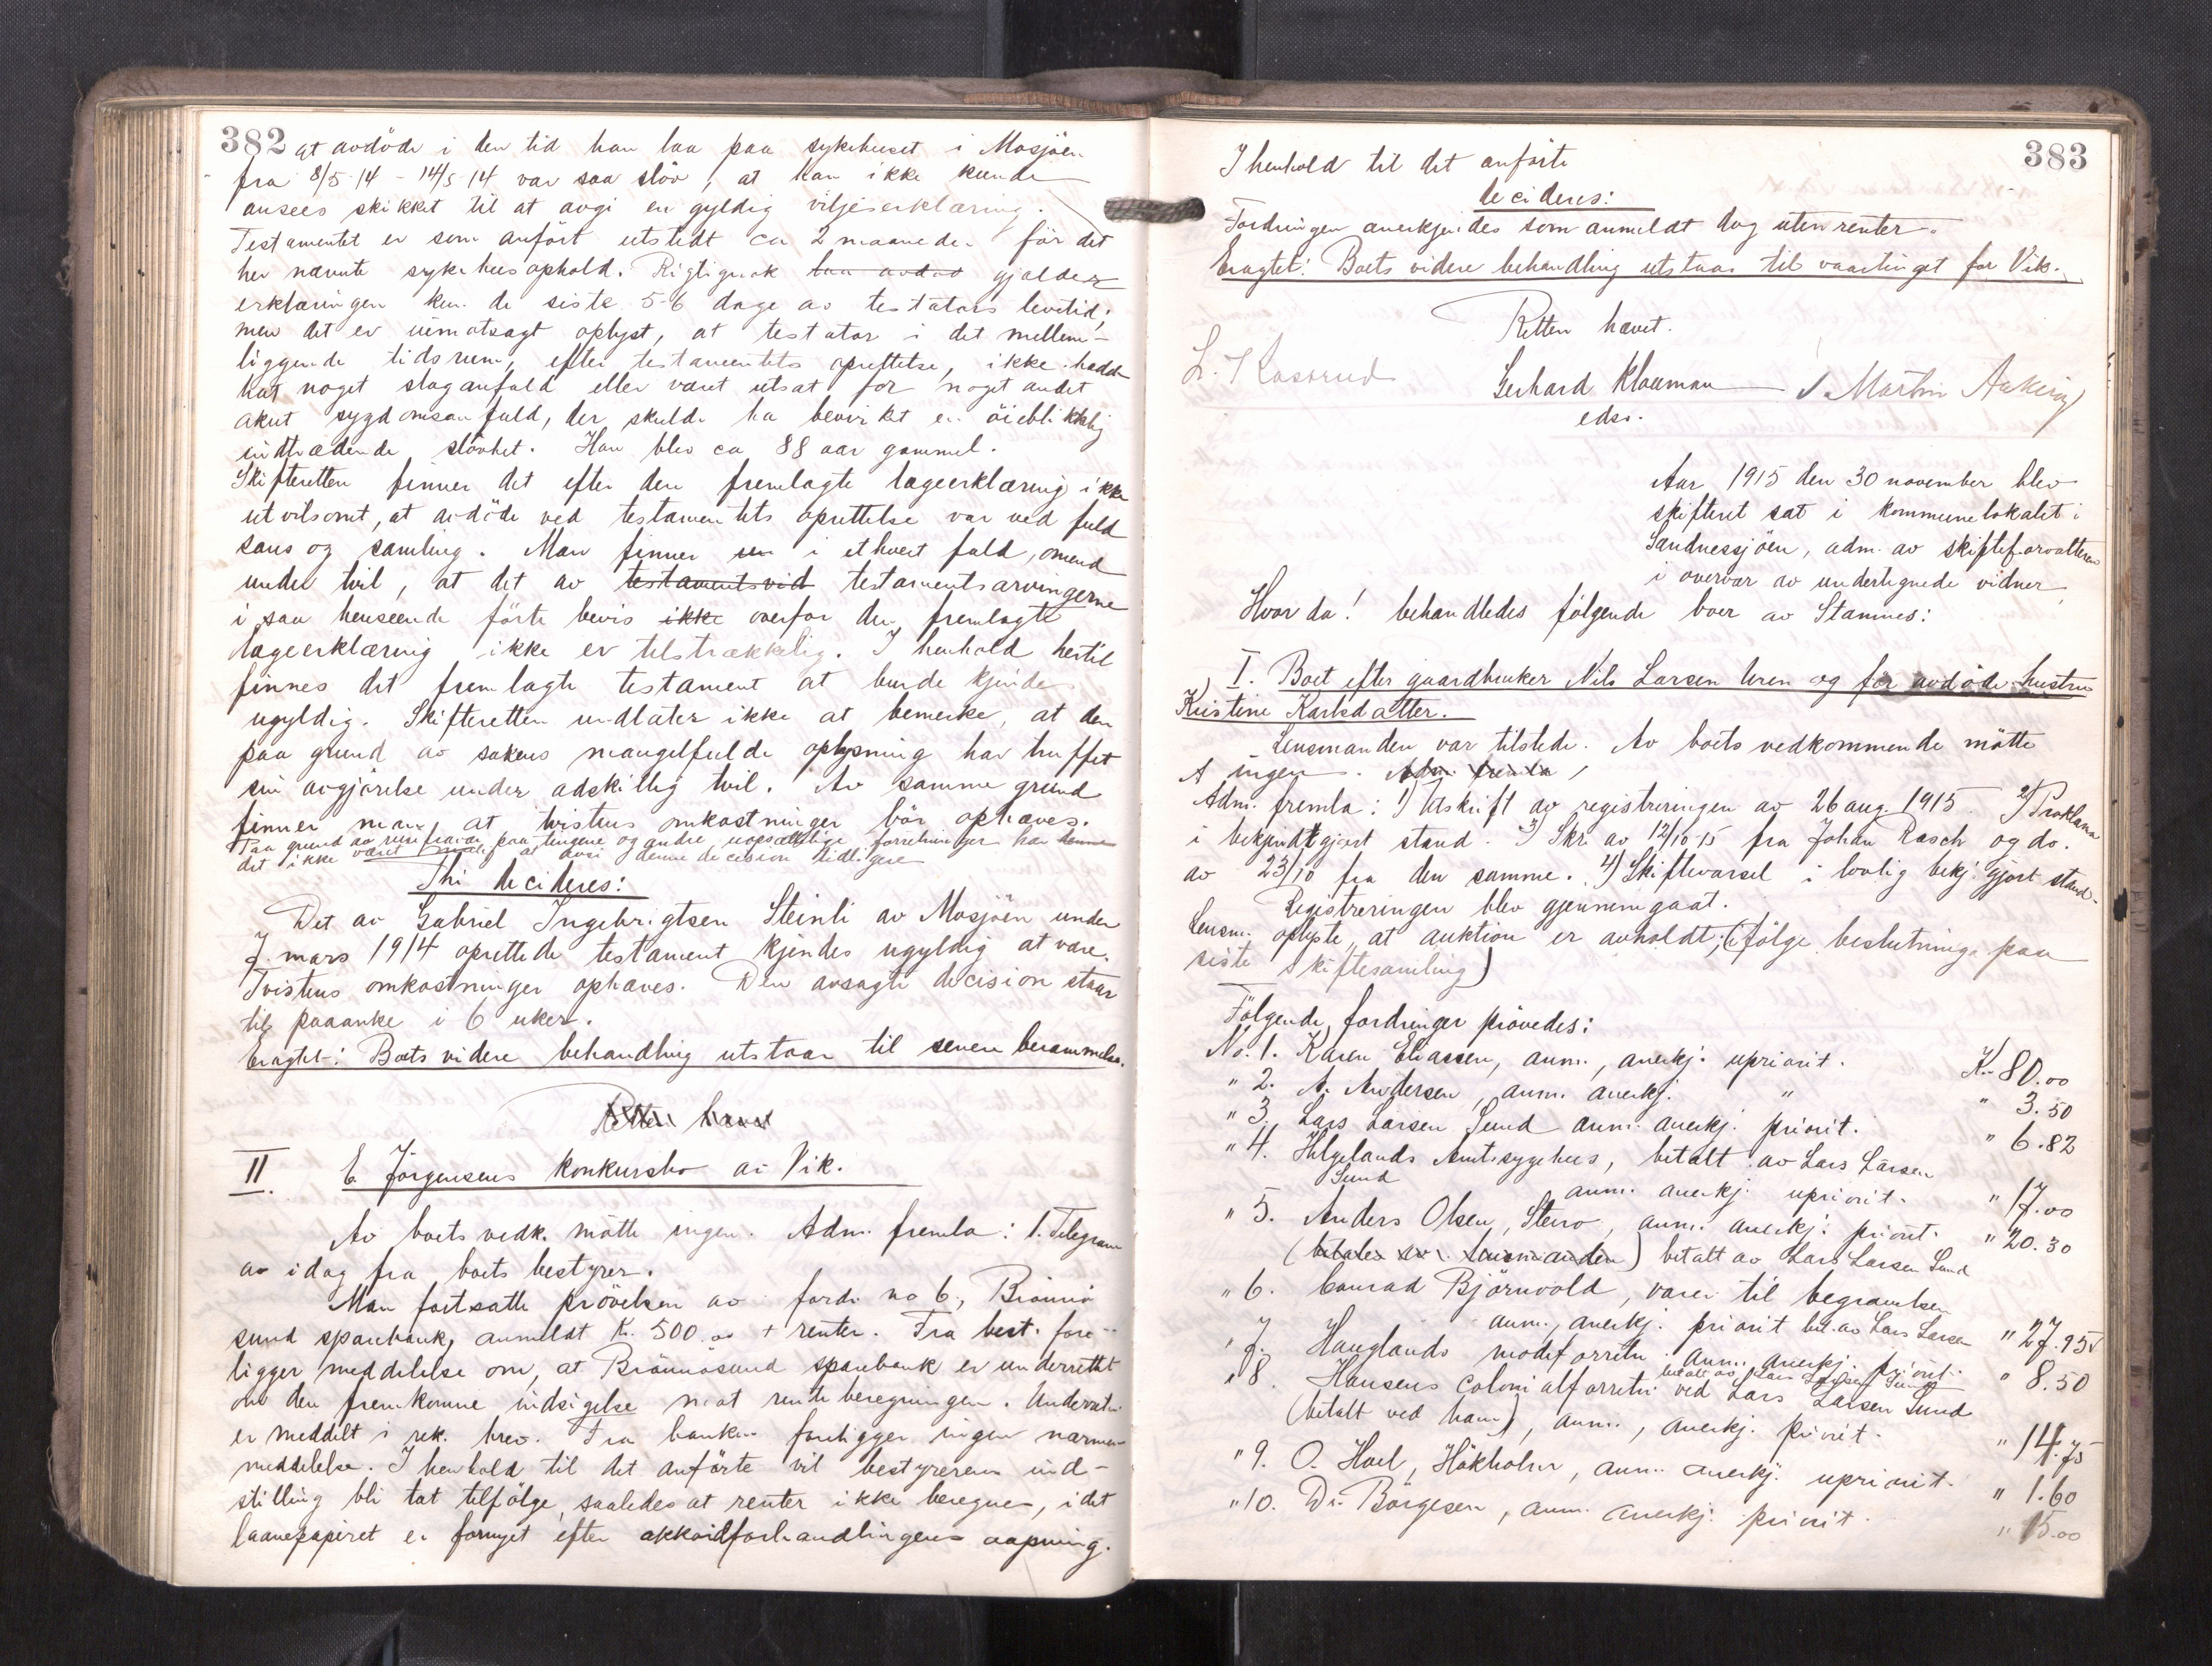 382 at avdöde i den tid han laa paa sykehuset i Mosjöen
fra 8/5 14 - 14/5 14 var saa slöv, at han ikke kunde
ansees skikket til at avgi en gyldig viljeserklæring.
Testamentet er som anfört utstedt ca 2 maaneder för det
her nævnte sykehusophold. Rigtignok laa avdöd gjælder
erklæringen kun de siste 5-6 dage av testators levetid;
men det er uimotsagt oplyst, at testator i det mellem-
liggende tidsrum, efter testamentets oprettelse, ikke hadde
hat noget slaganfald eller været utsat for noget andet
akut sygdomsanfald, der skulde ha bevirket en öieblikkelig
indtrædende slövhet. Han blev ca 88 aar gammel.
Skifteretten finner det efter den fremlagte lægeerklæring ikke
utvilsomt, at avdöde ved testamentets oprettelse var ved fuld
sans og samling. Man finner i ethvert fald, omend
under tvil, at det av testamentsvid testamentsarvingerne
i saa henseende förte bevis ikke overfor den fremlagte
lægeerklæring ikke er tilstrækkelig. I henhold hertil
finnes det fremlagte testament at burde kjendes
ugyldig. Skifteretten undlater ikke at bemerke, at den
paa grund av sakens mangelfulde oplysning har truffet
sin avgjörelse under adskillig tvil. Av samme grund
finner man at tvistens omkostninger bör ophæves.
Paa grund av reisefravær paa tingene og andre uopsættelige forretninger har
det ikke været mulig at avsi denne decision tidligere
Thi decideres:
Det av Gabriel Ingebrigtsen Steinli av Mosjöen under
7. mars 1914 oprettede testament kjendes ugyldig at være.
Tvistens omkostninger ophæves. Den avsagte decision staar
til paaanke i 6 uker.
Eragtet: Boets videre behandling utstaar til senere berammelse.
Retten hævet
II. E. Jörgensens konkursbo av Vik.
Av boets vedk. mötte ingen. Adm. fremla: 1. Telegram
av idag fra boets bestyrer.
Man fortsatte prövelsen av fordr. no 6, Brönnö
sund sparebank, anmeldt Kr. 500.00 + renter. Fra best. fore-
ligger meddelelse om, at Brönnösund sparebank er underrettet
om den fremkomne indsigelse mot renteberegningen. Underretn.
er meddelt i rek. brev. Fra banken foreligger ingen nærmere
meddelelse. I henhold til det anförte vil bestyrerens ind-
stilling bli tat tilfölge, saaledes at renter ikke beregnes, idet
laanepapiret er fornyet efter akkordforhandlingens aapning.
383
I henhold til det anförte
decideres:
Fordringen anerkjendes som anmeldt dog uten renter.
Eragtet: Boets videre behandling utstaar til vaartinget for Vik.
Retten hævet.
Gerhard Klaeman
edsv.
Aar 1915 den 30 november blev
skifteret sat i kommunelokalet i
Sandnessjöen, adm. av skifteforvalteren
i overvær av undertegnede vidner
Hvorda! behandledes følgende boer av Stamnes:
I. Boet efter gaardbruker Nils Larsen Uren og før avdöde hustru
Kristine Karlsdatter.
Lensmanden var tilstede. Av boets vedkommende mötte
ingen. Adm. fremla
Adm. fremla: 1) Utskrift av registreringen av 26 aug. 1915. 2) Proklama
i bekjendtgjort stand. 3) Skr. av 12/10 15 fra Johan Rasch og do.
av 23/10 fra den samme. 4) Skiftevarsel i lovlig bekj. gjort stand.
Registreringen blev gjennemgaat.
Lensm. oplyste, at auktion er avholdt, (ifölge beslutning paa
siste skiftesamling)
Følgende fordringer prövedes:
No. 1. Karen Eliassen, anm., anerkj. upriorit. Kr. 80.00
" 2. A. Andersen, anm. anerkj. " " 3.50
" 3. Lars Larsen Sund anm. anerkj. priorit. " 6.82
" 4. Helgelands Amtssygehus, betalt av Lars Larsen
Sund anm. anerkj. upriorit. " 17.00
" 5. Anders Olsen, Stero, anm. anerkj. priorit. " 20.30
(betales av lensmanden) betalt av Lars Larsen Sund
" 6. Conrad Björnvold, varer til begravelsen
anm., anerkj. priorit bet. av Lars Larsen " 27.95
" 7. Hauglands modeforretn. anm. anerkj. priorit. " 8.50
betalt av Lars Larsen Sund
" 8. Hansens Colonialforretn. ved Lars Larsen Sund
(betalt ved ham), anm., anerkj. priorit. " 14.75
" 9. O. Hoel, Hökholm, anm. anerkj. upriorit. " 1.60
" 10. Dr. Börgesen, anm. anerkj. priorit. " 15.00